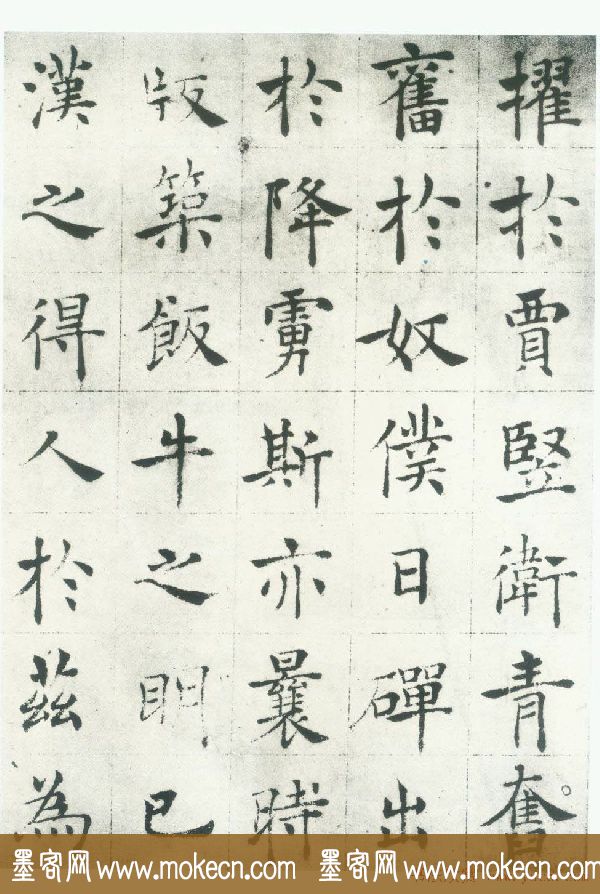 擢於賈竪衛青奮
奮於奴僕日磾出
於降虜斯亦曩時
版築飯牛之明已
漢之得人於茲為
墨客网 www.mokecn.com 墨客网 www.mokecn.com